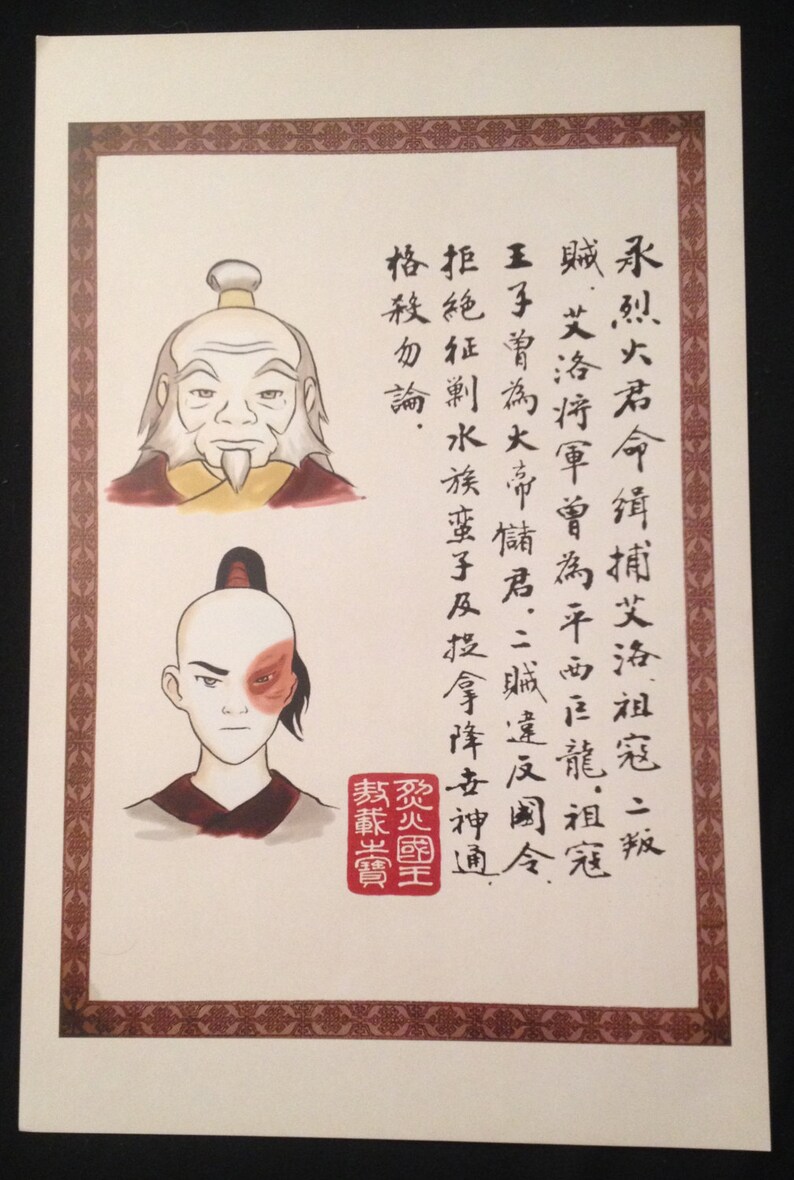 承烈火君命緝捕艾洛、祖寇二叛
賊．艾洛將軍曾為平西巨龍．祖寇
王子曾為火帝儲君．二賊違反國令．
拒絕征剿水族蠻子及捉拿降世神通．
格殺勿論．
烈火國王
敖載之寶